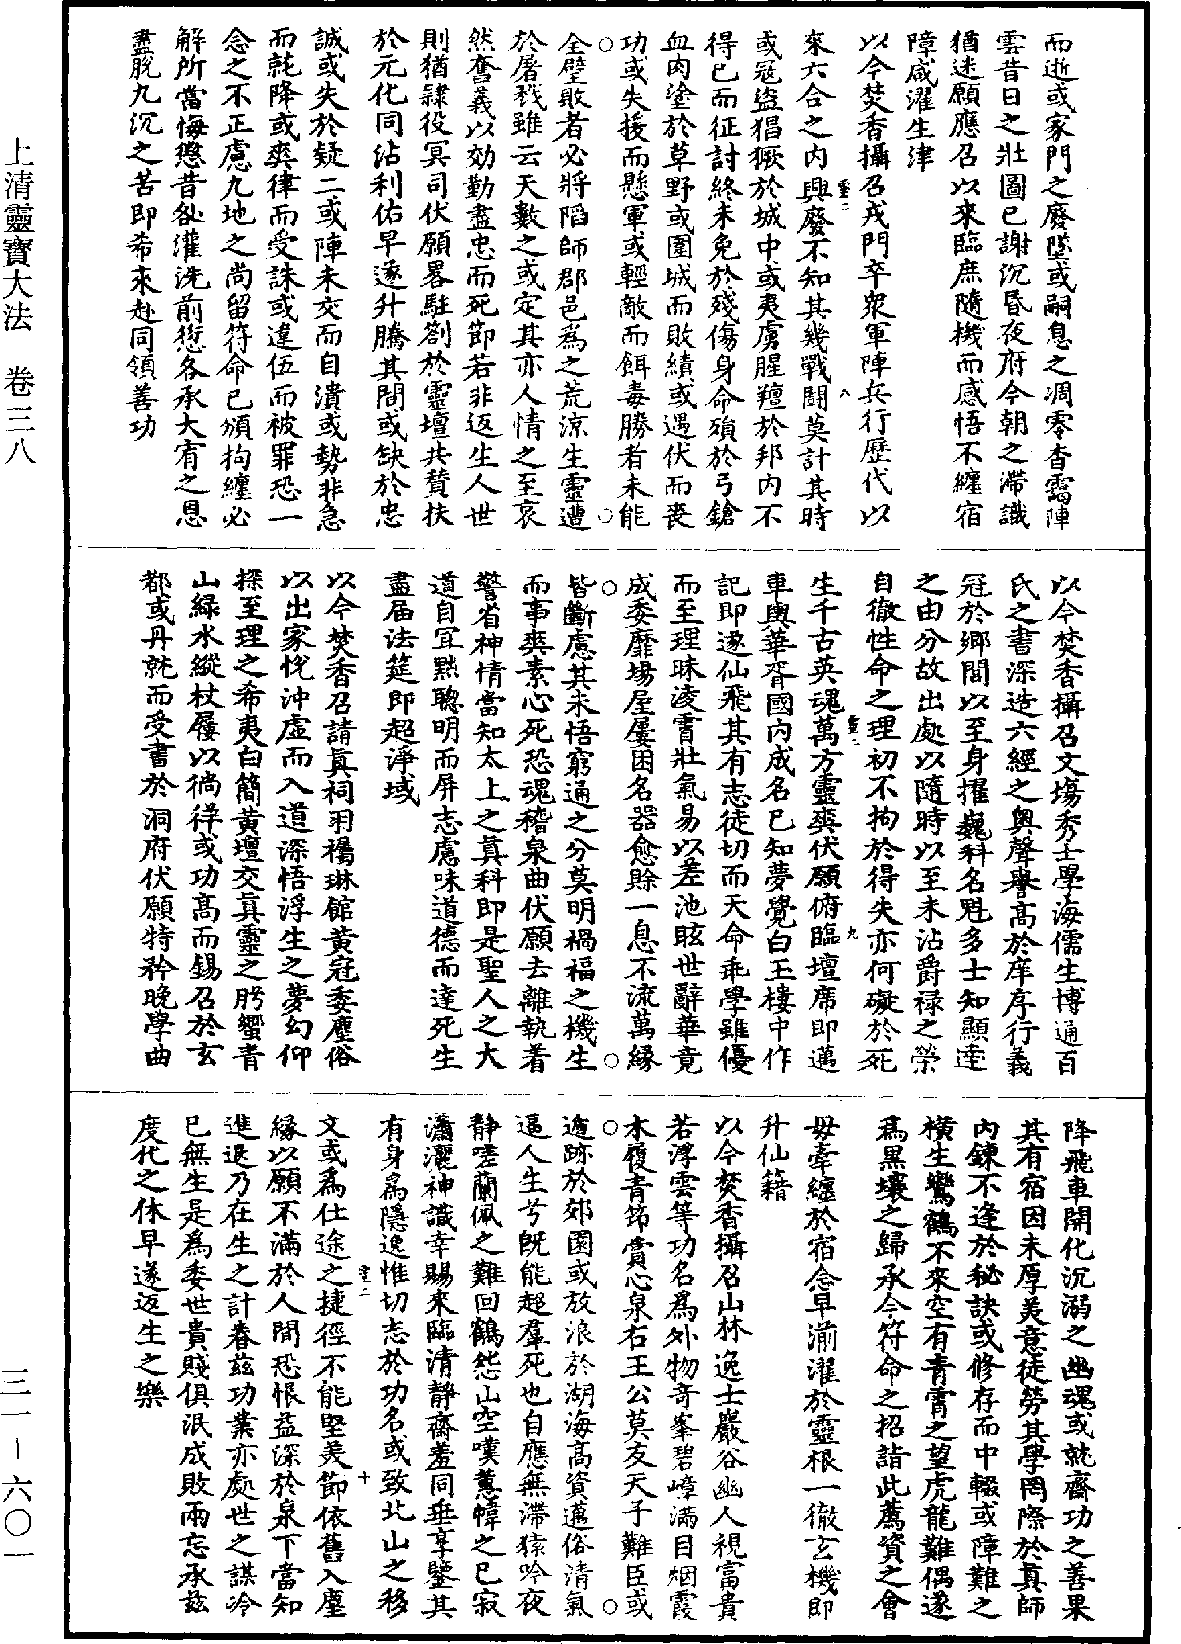 上清靈寶大法　卷三八
三一—六〇一
而逝或家門之廢墜或嗣息之凋零杳靄陣
雲昔日之壯圖已謝沉昏夜府今朝之滯識
猶迷願應召以來臨庶隨機而感悟不纏宿
障咸濯生津
以今焚香攝召戎門卒衆軍陣兵行歷代以
來六合之內興廢不知其幾戰鬪莫計其時
或冦盗猖獗於城中或夷虜腥羶於邦內不
得已而征討終未免於殘傷身命殞於弓鎗
血肉塗於草野或圍城而敗績或遇伏而喪
功或失援而懸軍或輕敵而餌毒勝者未能
全壁敗者必將陷師郡邑爲之荒涼生靈遭
於屠戮雖云天數之或定其亦人情之至哀
然奮義以効勤盡忠而死節若非返生人世
則猶隷役冥司伏願畧駐劄於靈壇共賛扶
於元化同沾利佑早遂升騰其間或缺於忠
誠或失於疑二或陣未交而自潰或勢非急
而就降或爽律而受誅或違伍而被罪恐一
念之不正慮九地之尚留符命已頒拘纏必
解所當悔懲昔咎灌洗前愆各承大宥之恩
盡脫九沉之苦即希來赴同領善功
以今焚香攝召文場秀士學海儒生博通百
氏之書深造六經之奧聲譽高於庠序行義
冠於鄉閭以至身擢巍科名魁多士知顯達
之由分故出處以隨時以至未沾爵禄之榮
自徹性命之理初不拘於得失亦何礙於死
生千古英魂萬方靈爽伏願俯臨壇席即邁
車輿華胥國內成名已知夢覺白玉樓中作
記即遂仙飛其有志徒切而天命乖學雖優
而至理昧凌霄壯氣易以差池眩世辭華竟
成委靡場屋屢困名器愈賒一息不流萬緣
皆斷慮其未悟窮通之分莫明禍福之機生
而事爽素心死恐魂稽泉曲伏願去離執着
警省神情當知太上之真科即是聖人之大
道自宜黙聰明而屏志慮味道德而達死生
盡届法筵即超淨域
以今焚香召請真祠羽襦琳館黄冠委塵俗
以出家恱沖虛而入道深悟浮生之夢幻仰
探至理之希夷白簡黄壇交真靈之肸蠁青
山緑水縱杖屨以徜徉或功高而錫召於玄
都或丹就而受書於洞府伏願特矜晚學曲
降飛車開化沉溺之幽魂或就齋功之善果
其有宿因未厚美意徒勞其學罔際於真師
內鍊不逢於秘訣或修存而中輟或障難之
橫生鸞鶴不來空有青霄之望虎龍難偶遂
爲黒壤之歸承今符命之招詣此薦資之會
毋牽纏於宿念早湔濯於靈根一徹玄機即
升仙籍
以今焚香攝召山林逸士巖谷幽人視富貴
若浮雲等功名爲外物奇峯碧嶂滿目烟霞
木履青笻賞心泉石王公莫友天子難臣或
遁跡於郊園或放浪於湖海高資邁俗清氣
逼人生兮旣能超羣死也自應無滯猿吟夜
靜嗟蘭佩之難回鶴怨山空嘆蕙幃之已寂
瀟灑神識幸賜來臨清靜齋羞同垂享鑒其
有身爲隱逸惟切志於功名或致北山之移
文或爲仕途之捷徑不能堅美節依舊入塵
緣以願不滿於人間恐恨益深於泉下當知
進退乃在生之計眷兹功業亦處世之謀冷
已無生是爲委世貴賤俱泯成敗兩忘承兹
度化之休早遂返生之樂